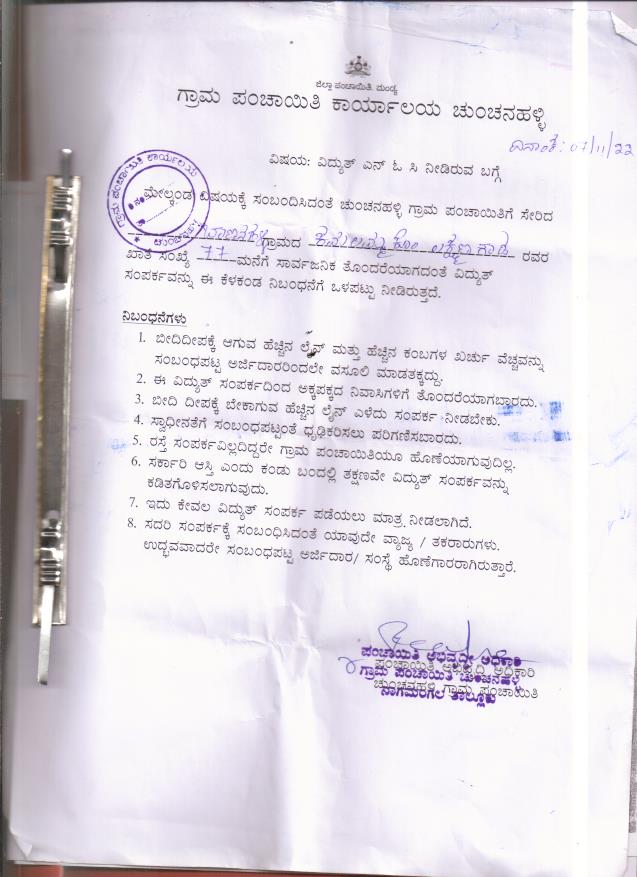 ಜಿಲ್ಲಾ ಪಂಚಾಯಿತಿ, ಮಂಡ್ಯ
ಗ್ರಾಮ ಪಂಚಾಯಿತಿ ಕಾರ್ಯಾಲಯ ಚುಂಚನಹಳ್ಳಿ
ದಿನಾಂಕ: 07/11/22
ವಿಷಯ: ವಿದ್ಯುತ್ ಎನ್ ಓ ಸಿ ನೀಡಿರುವ ಬಗ್ಗೆ
ಗ್ರಾಮ ಪಂಚಾಯಿತಿ ಕಾರ್ಯಾಲಯ
ಚುಂಚನಹಳ್ಳಿ
ಮೇಲ್ಕಂಡ ವಿಷಯಕ್ಕೆ ಸಂಬಂದಿಸಿದಂತೆ ಚುಂಚನಹಳ್ಳಿ ಗ್ರಾಮ ಪಂಚಾಯಿತಿಗೆ ಸೇರಿದ
ಗ್ರಾಮದ ಕೋಂ ರವರ
ಖಾತೆ ಸಂಖ್ಯೆ 77 ಮನೆಗೆ ಸಾರ್ವಜನಿಕ ತೊಂದರೆಯಾಗದಂತೆ ವಿದ್ಯುತ್
ಸಂಪರ್ಕವನ್ನು ಈ ಕೆಳಕಂಡ ನಿಬಂಧನೆಗೆ ಒಳಪಟ್ಟು ನೀಡಿರುತ್ತದೆ.
ನಿಬಂಧನೆಗಳು
1. ಬೀದಿದೀಪಕ್ಕೆ ಆಗುವ ಹೆಚ್ಚಿನ ಲೈನ್ ಮತ್ತು ಹೆಚ್ಚಿನ ಕಂಬಗಳ ಖರ್ಚು ವೆಚ್ಚವನ್ನು
ಸಂಬಂಧಪಟ್ಟ ಅರ್ಜಿದಾರರಿಂದಲೇ ವಸೂಲಿ ಮಾಡತಕ್ಕದ್ದು.
2. ಈ ವಿದ್ಯುತ್ ಸಂಪರ್ಕದಿಂದ ಅಕ್ಕಪಕ್ಕದ ನಿವಾಸಿಗಳಿಗೆ ತೊಂದರೆಯಾಗಬಾರದು.
3. ಬೀದಿ ದೀಪಕ್ಕೆ ಬೇಕಾಗುವ ಹೆಚ್ಚಿನ ಲೈನ್ ಎಳೆದು ಸಂಪರ್ಕ ನೀಡಬೇಕು.
4. ಸ್ವಾಧೀನತೆಗೆ ಸಂಬಂಧಪಟ್ಟಂತೆ ಧೃಢಿಕರಿಸಲು ಪರಿಗಣಿಸಬಾರದು.
5. ರಸ್ತೆ ಸಂಪರ್ಕವಿಲ್ಲದಿದ್ದರೇ ಗ್ರಾಮ ಪಂಚಾಯಿತಿಯೂ ಹೊಣೆಯಾಗುವುದಿಲ್ಲ.
6. ಸರ್ಕಾರಿ ಆಸ್ತಿ ಎಂದು ಕಂಡು ಬಂದಲ್ಲಿ ತಕ್ಷಣವೇ ವಿದ್ಯುತ್ ಸಂಪರ್ಕವನ್ನು
ಕಡಿತಗೊಳಿಸಲಾಗುವುದು.
7. ಇದು ಕೇವಲ ವಿದ್ಯುತ್ ಸಂಪರ್ಕ ಪಡೆಯಲು ಮಾತ್ರ ನೀಡಲಾಗಿದೆ.
8. ಸದರಿ ಸಂಪರ್ಕಕ್ಕೆ ಸಂಬಂಧಿಸಿದಂತೆ ಯಾವುದೇ ವ್ಯಾಜ್ಯ / ತಕರಾರುಗಳು.
ಉದ್ಭವವಾದರೇ ಸಂಬಂಧಪಟ್ಟ ಅರ್ಜಿದಾರ/ ಸಂಸ್ಥೆ ಹೊಣೆಗಾರರಾಗಿರುತ್ತಾರೆ.
ಪಂಚಾಯಿತಿ ಅಭಿವೃದ್ಧಿ ಅಧಿಕಾರಿ
ಪಂಚಾಯಿತಿ ಅಭಿವೃದ್ಧಿ ಅಧಿಕಾರಿ
ಗ್ರಾಮ ಪಂಚಾಯಿತಿ ಚುಂಚನಹಳ್ಳಿ
ಚುಂಚನಹಳ್ಳಿ ಗ್ರಾಮ ಪಂಚಾಯಿತಿ
ನಾಗಮಂಗಲ ತಾಲ್ಲೂಕು